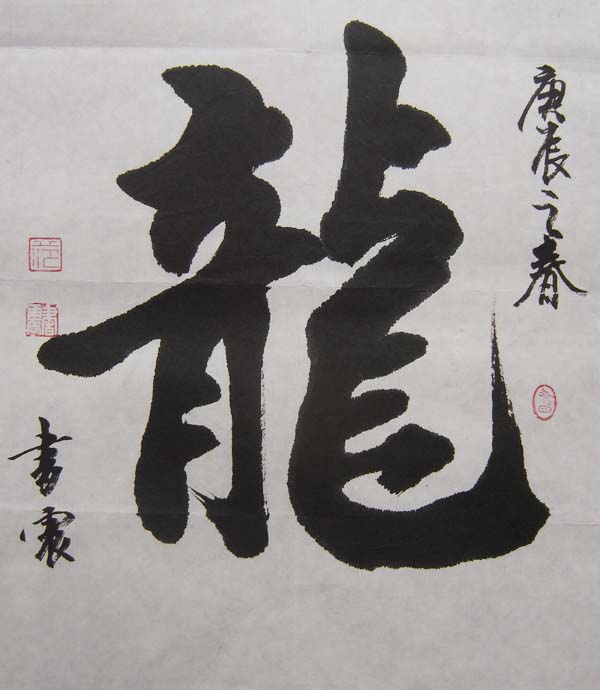 庚辰之春
龍
書震